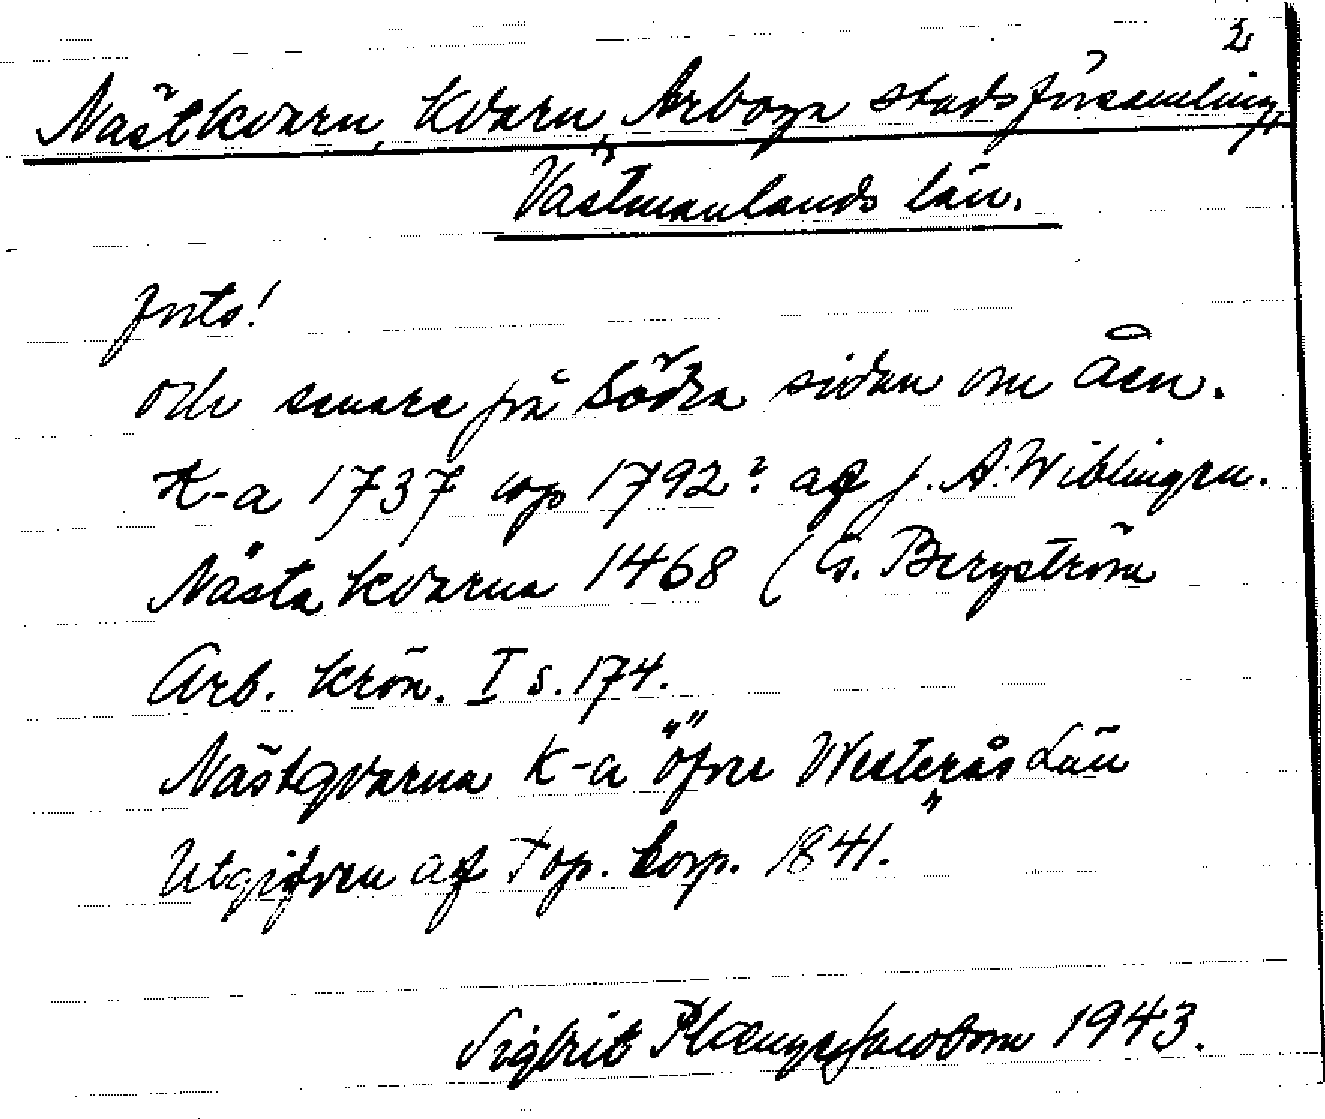 2
Nästkvarn, Kvarn, Arboga stadsförsamling,
Västmanlands län.
forts!
och senare på södra sidan om åen.
K-a 1737 cop 1792? af J. A. Wiblingen.
Nästa kvarna 1468 (G. Bergström
Arb. krön. I s. 174.
Nästqvarna K-a "öfver Westerås Län"
Utgifven af Top. Corp. 1841.
Sigbrit 1943.